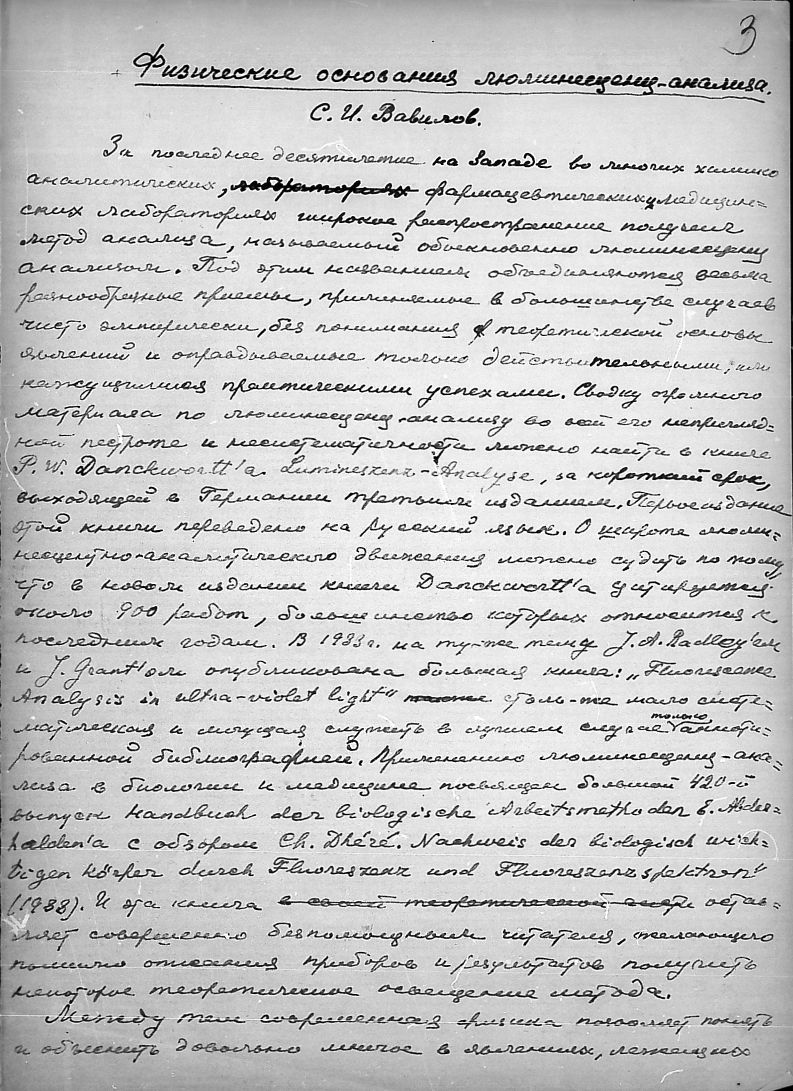 3
Физические основания люминесценц-анализа.
С. И. Вавилов.
За последнее десятилетие на Западе во многих химико
аналитических, лабораториях фармацевтических и медицин=
ских лабораториях широкое распространение получил
метод анализа, называемый обыкновенно люминесценц
анализом. Под этим названием объединяются весьма
разнообразные приемы, применяемые в большинстве случаев
чисто эмпирически, без понимания теоретической основы
явлений и оправдываемые только действительными, или
кажущимися практическими успехами. Сводку огромного
материала по люминесценц-анализу во всей его непригляд=
ной пестроте и несистематичности можно найти в книге
P. W. Danckwortt'a Lumineszenz-Analyse, за короткий срок,
выходящей в Германии третьим изданием. Первое издание
этой книги переведено на русский язык. О широте люми=
несцентно-аналитического движения можно судить по тому,
что в новом издании книги Danckwortt'a цитируется
около 900 работ, большинство которых относится к
последним годам. В 1933 г. на ту-же тему J. A. Radley'ем
и J. Grant'ом опубликована большая книга: „Fluorescence
Analysis in ultra-violet light" также столь-же мало систе=
матическая и могущая служить в лучшем случае только анноти=
рованной библиографией. Применению люминесценц-ана=
лиза в биологии и медицине посвящен большой 420-й
выпуск Handbuch der biologische Arbeitsmethoden E. Abder=
halden'a с обзором Ch. Dhéré. Nachweis der biologisch wich=
tigen Körper durch Fluoreszenz und Fluoreszenzspektren"
(1933). И эта книга в своей теоретической части остав=
ляет совершенно безпомощным читателя, желающего
помимо описания приборов и результатов получить
некоторое теоретическое освещение метода.
Между тем современная физика позволяет понять
и объяснить довольно многое в явлениях, лежащих